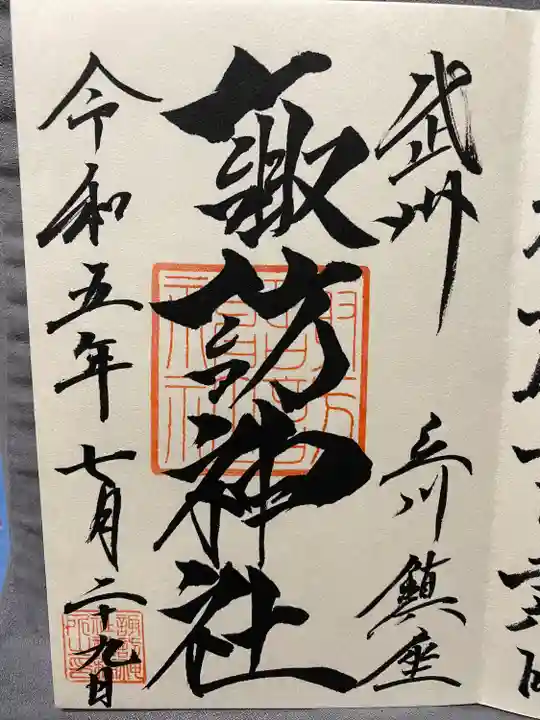 武州 立川鎮座
諏訪神社
令和五年七月二十九日